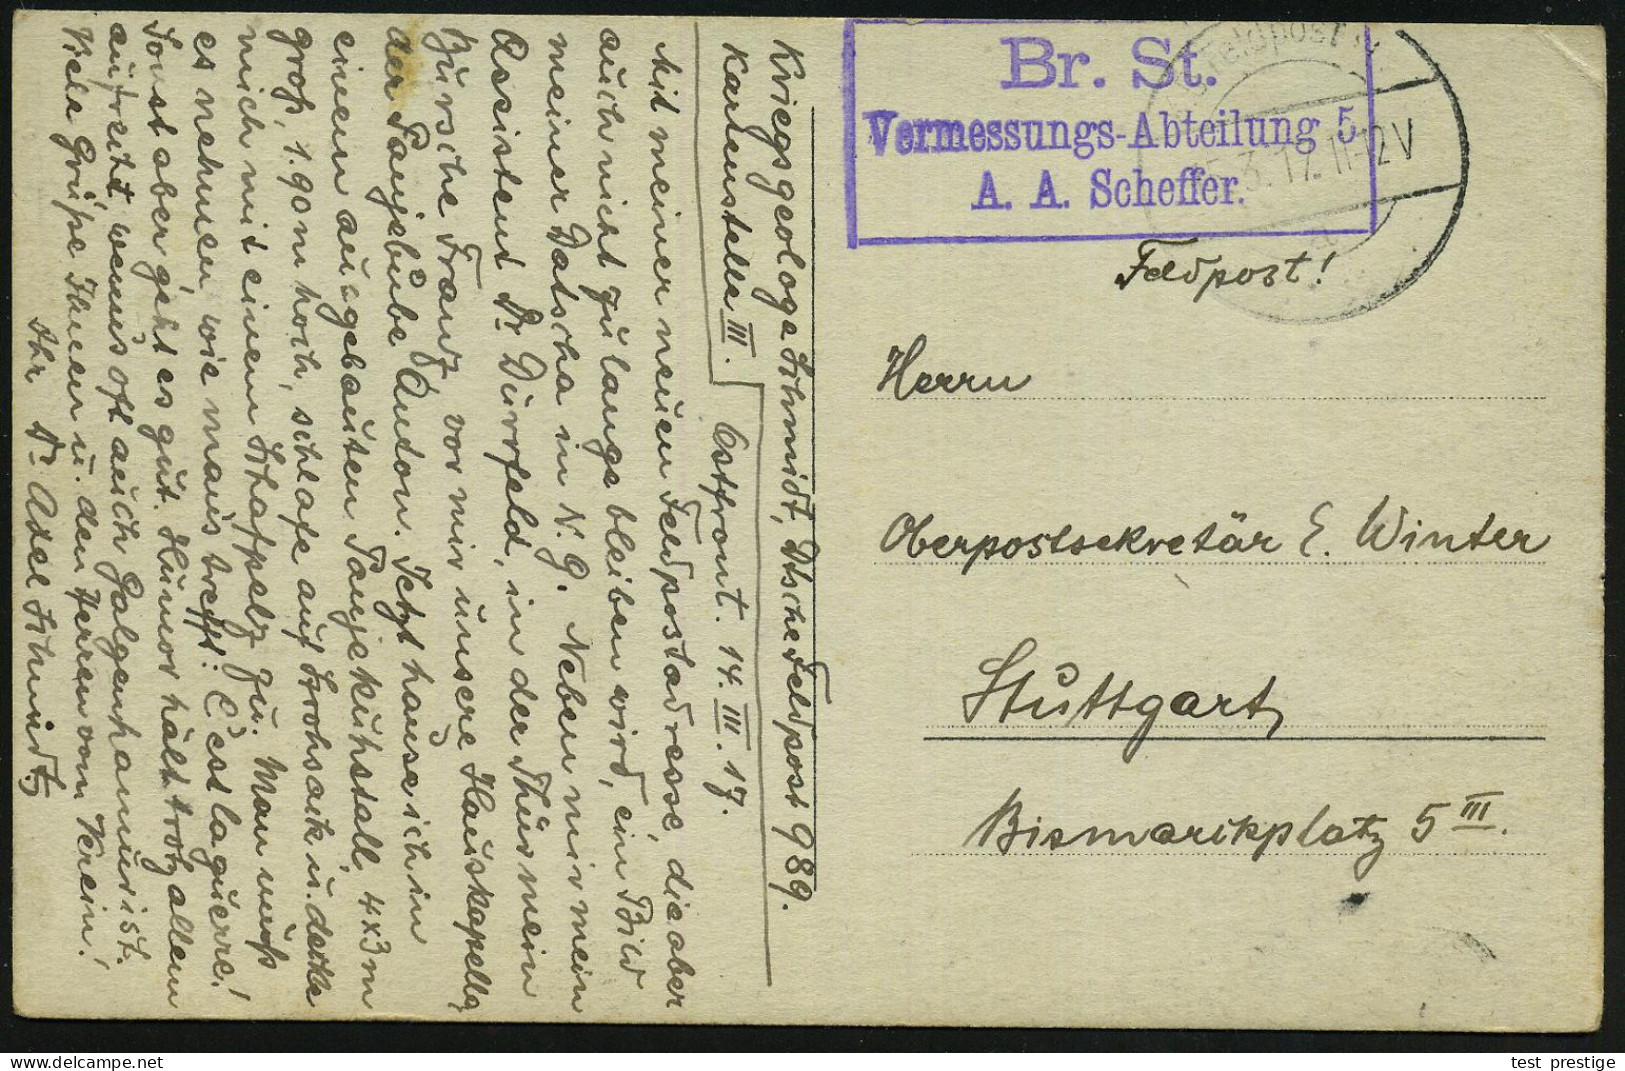 Br. St.
Vermessungs-Abteilung 5
A. A. Scheffer.
Feldpost
3. 17. 11-12V
Feldpost!
Herrn
Oberpostsekretär E. Winter
Stuttgart
Bismarckplatz 5 III.
Kriegsgeologe Schmidt, Dtsche Feldpost 989.
Kartenstelle III.
Ostfront. 14. III. 17.
Mit meiner neuen Feldpostadresse, die aber
auch nicht zu lange bleiben wird, ein Bild
meiner Datscha in N. G. Neben mir mein
Assistent Dr. Dürrfeld, in der Thür mein
Bursche Franz, vor mir unsere Hauskapelle,
der Panjebübe Anton. Jetzt hause ich in
einem ausgebauten Panjekuhstall, 4x3m
groß, 1.90m hoch, schlafe auf Strohsack u. decke
mich mit einem Schafpelz zu. Man muß
es nehmen wie mans trefft: C'est la guerre!
Sonst aber geht es gut. Humor hält trotz allem
aufrecht, wenns oft auch Galgenhamur ist.
Viele Grüße Ihnen u. den Herren vom Verein!
Ihr Dr. Axel Schmidt
test_prestige